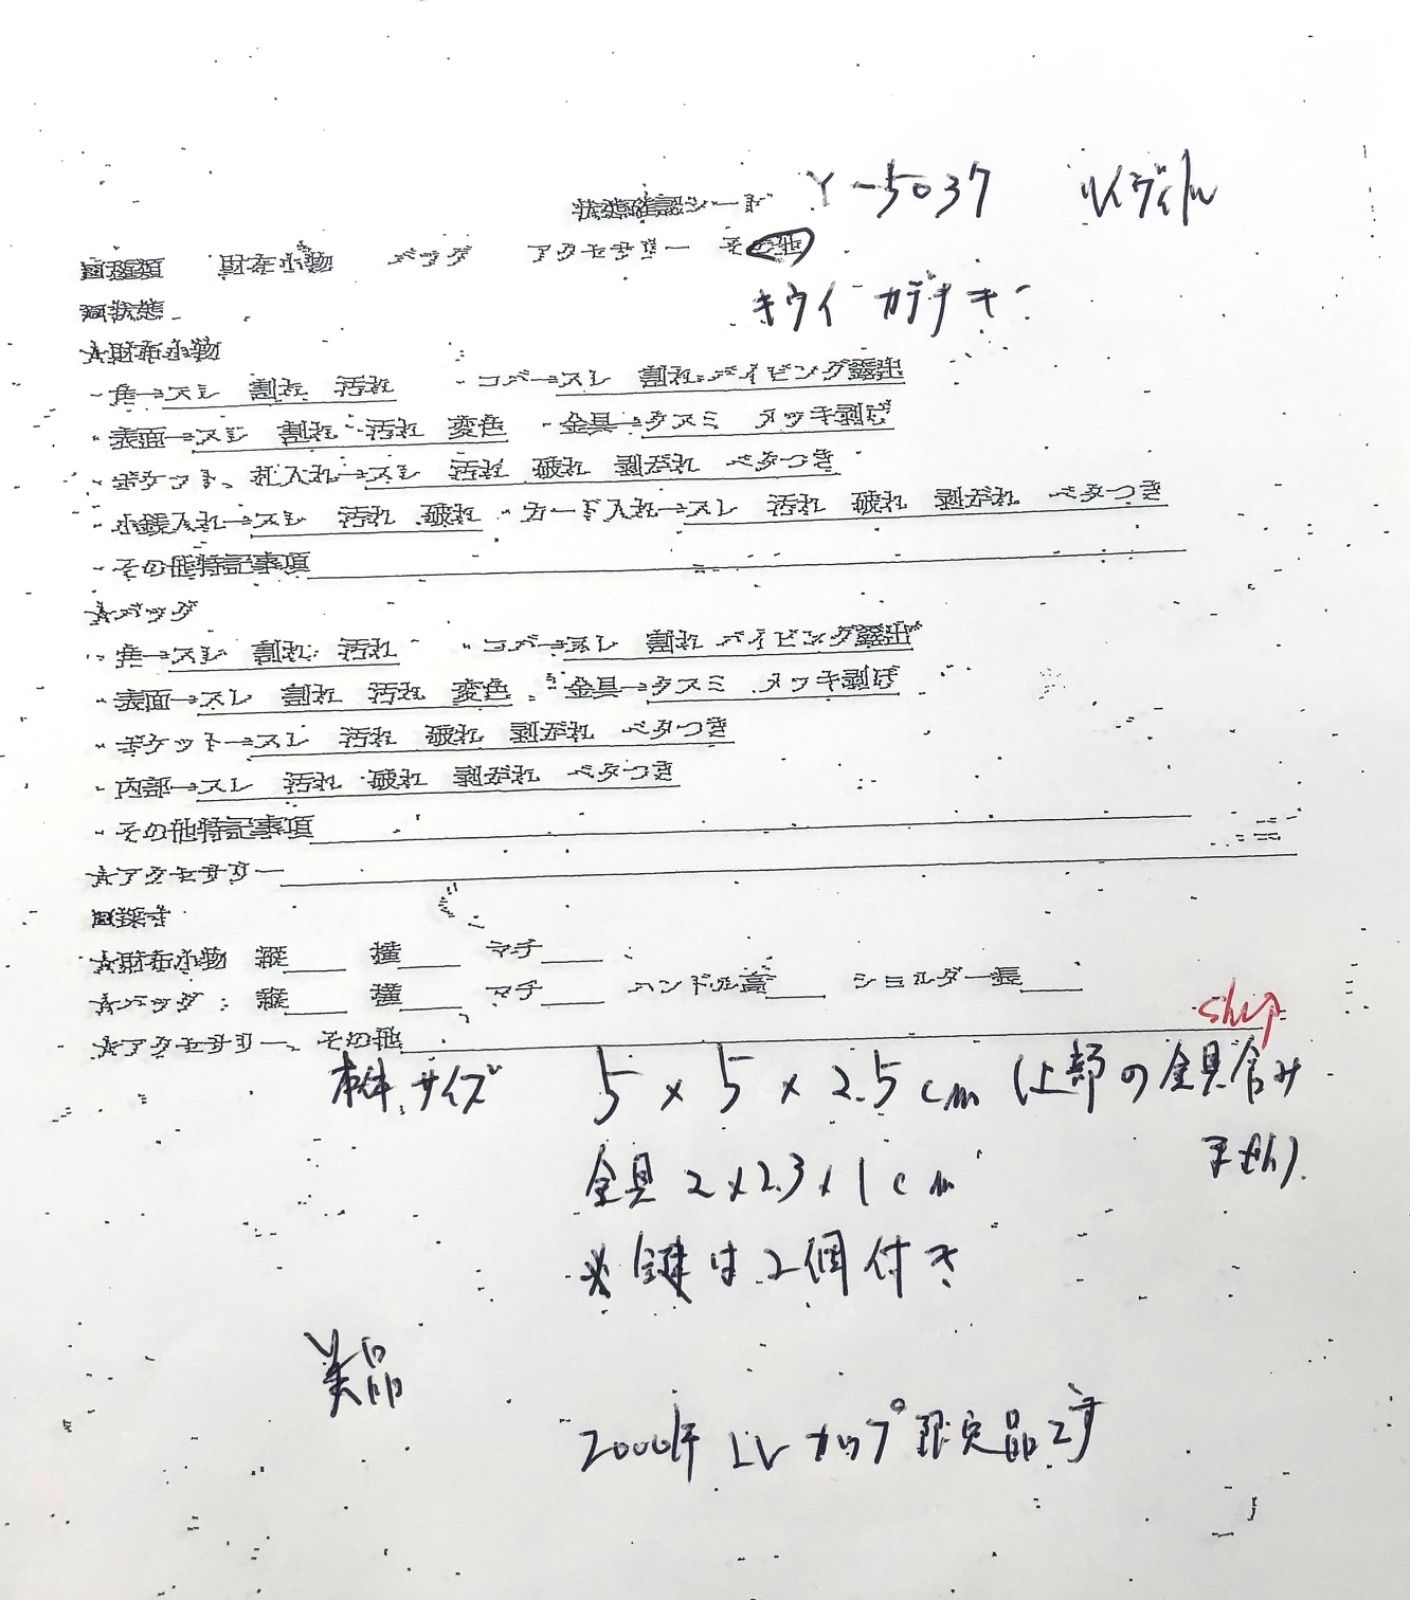 状態確認シード Y-5037 ルイヴィル
□種類 財布小物 バッグ アクセサリー その他
キウイ カデナキー
□状態
☆財布小物
・角→スレ 割れ 汚れ ・コバ→スレ 割れ パイピング露出
・表面→スレ 割れ 汚れ 変色 ・金具→クスミ メッキ剥げ
・ポケット、札入れ→スレ 汚れ 破れ 剥がれ ベタつき
・小銭入れ→スレ 汚れ 破れ ・カード入れ→スレ 汚れ 破れ 剥がれ ベタつき
・その他特記事項
☆バッグ
・角→スレ 割れ 汚れ ・コバ→スレ 割れ パイピング露出
・表面→スレ 割れ 汚れ 変色 ・金具→クスミ メッキ剥げ
・ポケット→スレ 汚れ 破れ 剥がれ ベタつき
・内部→スレ 汚れ 破れ 剥がれ ベタつき
・その他特記事項
☆アクセサリー
□採寸
☆財布小物 縦 横 マチ
☆バッグ: 縦 横 マチ ハンドル高 ショルダー長
ship
☆アクセサリー、その他
本体サイズ 5×5×2.5cm (上部の金具含み
ません)
金具 2×2.3×1cm
※鍵は2個付き
美品
2000年 LVカップ限定品です